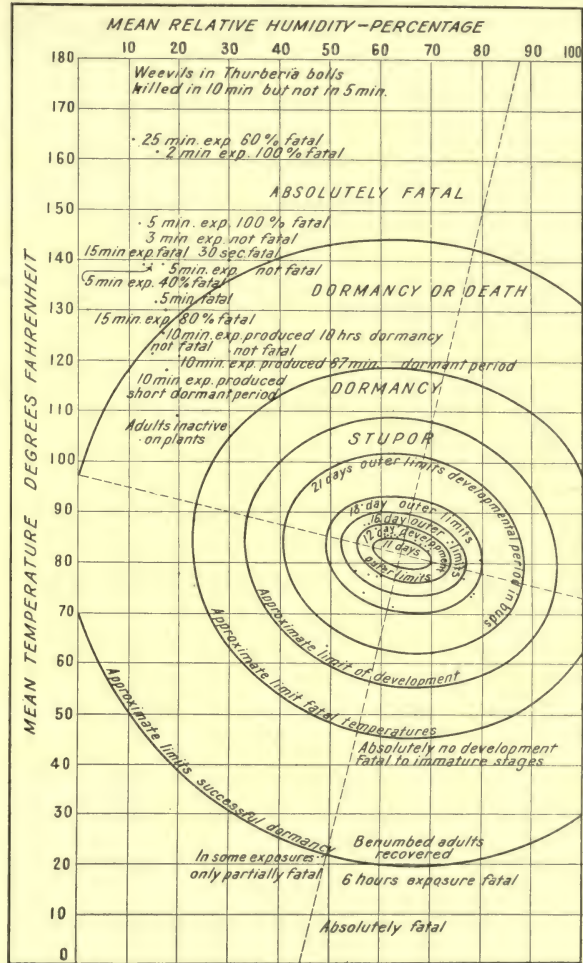 MEAN RELATIVE HUMIDITY—PERCENTAGE
10 20 30 40 50 60 70 80 90 100
MEAN TEMPERATURE DEGREES FAHRENHEIT
180
170
160
150
140
130
120
110
100
90
80
70
60
50
40
30
20
10
0
Weevils in Thurberia bolls
killed in 10 min but not in 5 min.
25 min. exp. 60% fatal
2 min exp. 100% fatal
ABSOLUTELY FATAL
5 min. exp. 100% fatal
3 min exp. not fatal
15 min exp. fatal 30 sec. fatal
5 min. exp. not fatal
5 min exp. 40% fatal
DORMANCY OR DEATH
5 min fatal
15 min exp. 80% fatal
10 min exp. produced 18 hrs dormancy
not fatal not fatal
10 min. exp. produced 67 min. dormant period
10 min exp. produced
short dormant period
DORMANCY
Adults inactive
on plants
STUPOR
21 days outer limits developmental period in buds
18 day outer limits
16 day outer limits
12 day development
11 days
outer limits
Approximate limit of development
Approximate limit fatal temperatures
Approximate limits successful dormancy
Absolutely no development
Fatal to immature stages
In some exposures
only partially fatal
Benumbed adults
recovered
6 hours exposure fatal
Absolutely fatal